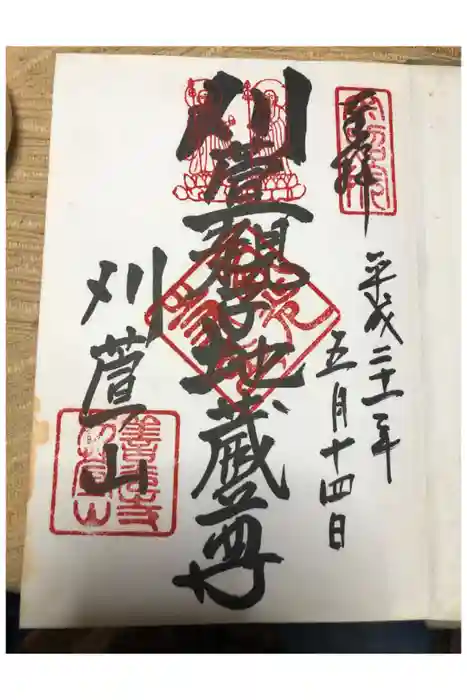 奉拝
平成二十一年
五月十四日
刈萱親子地蔵尊
刈萱山